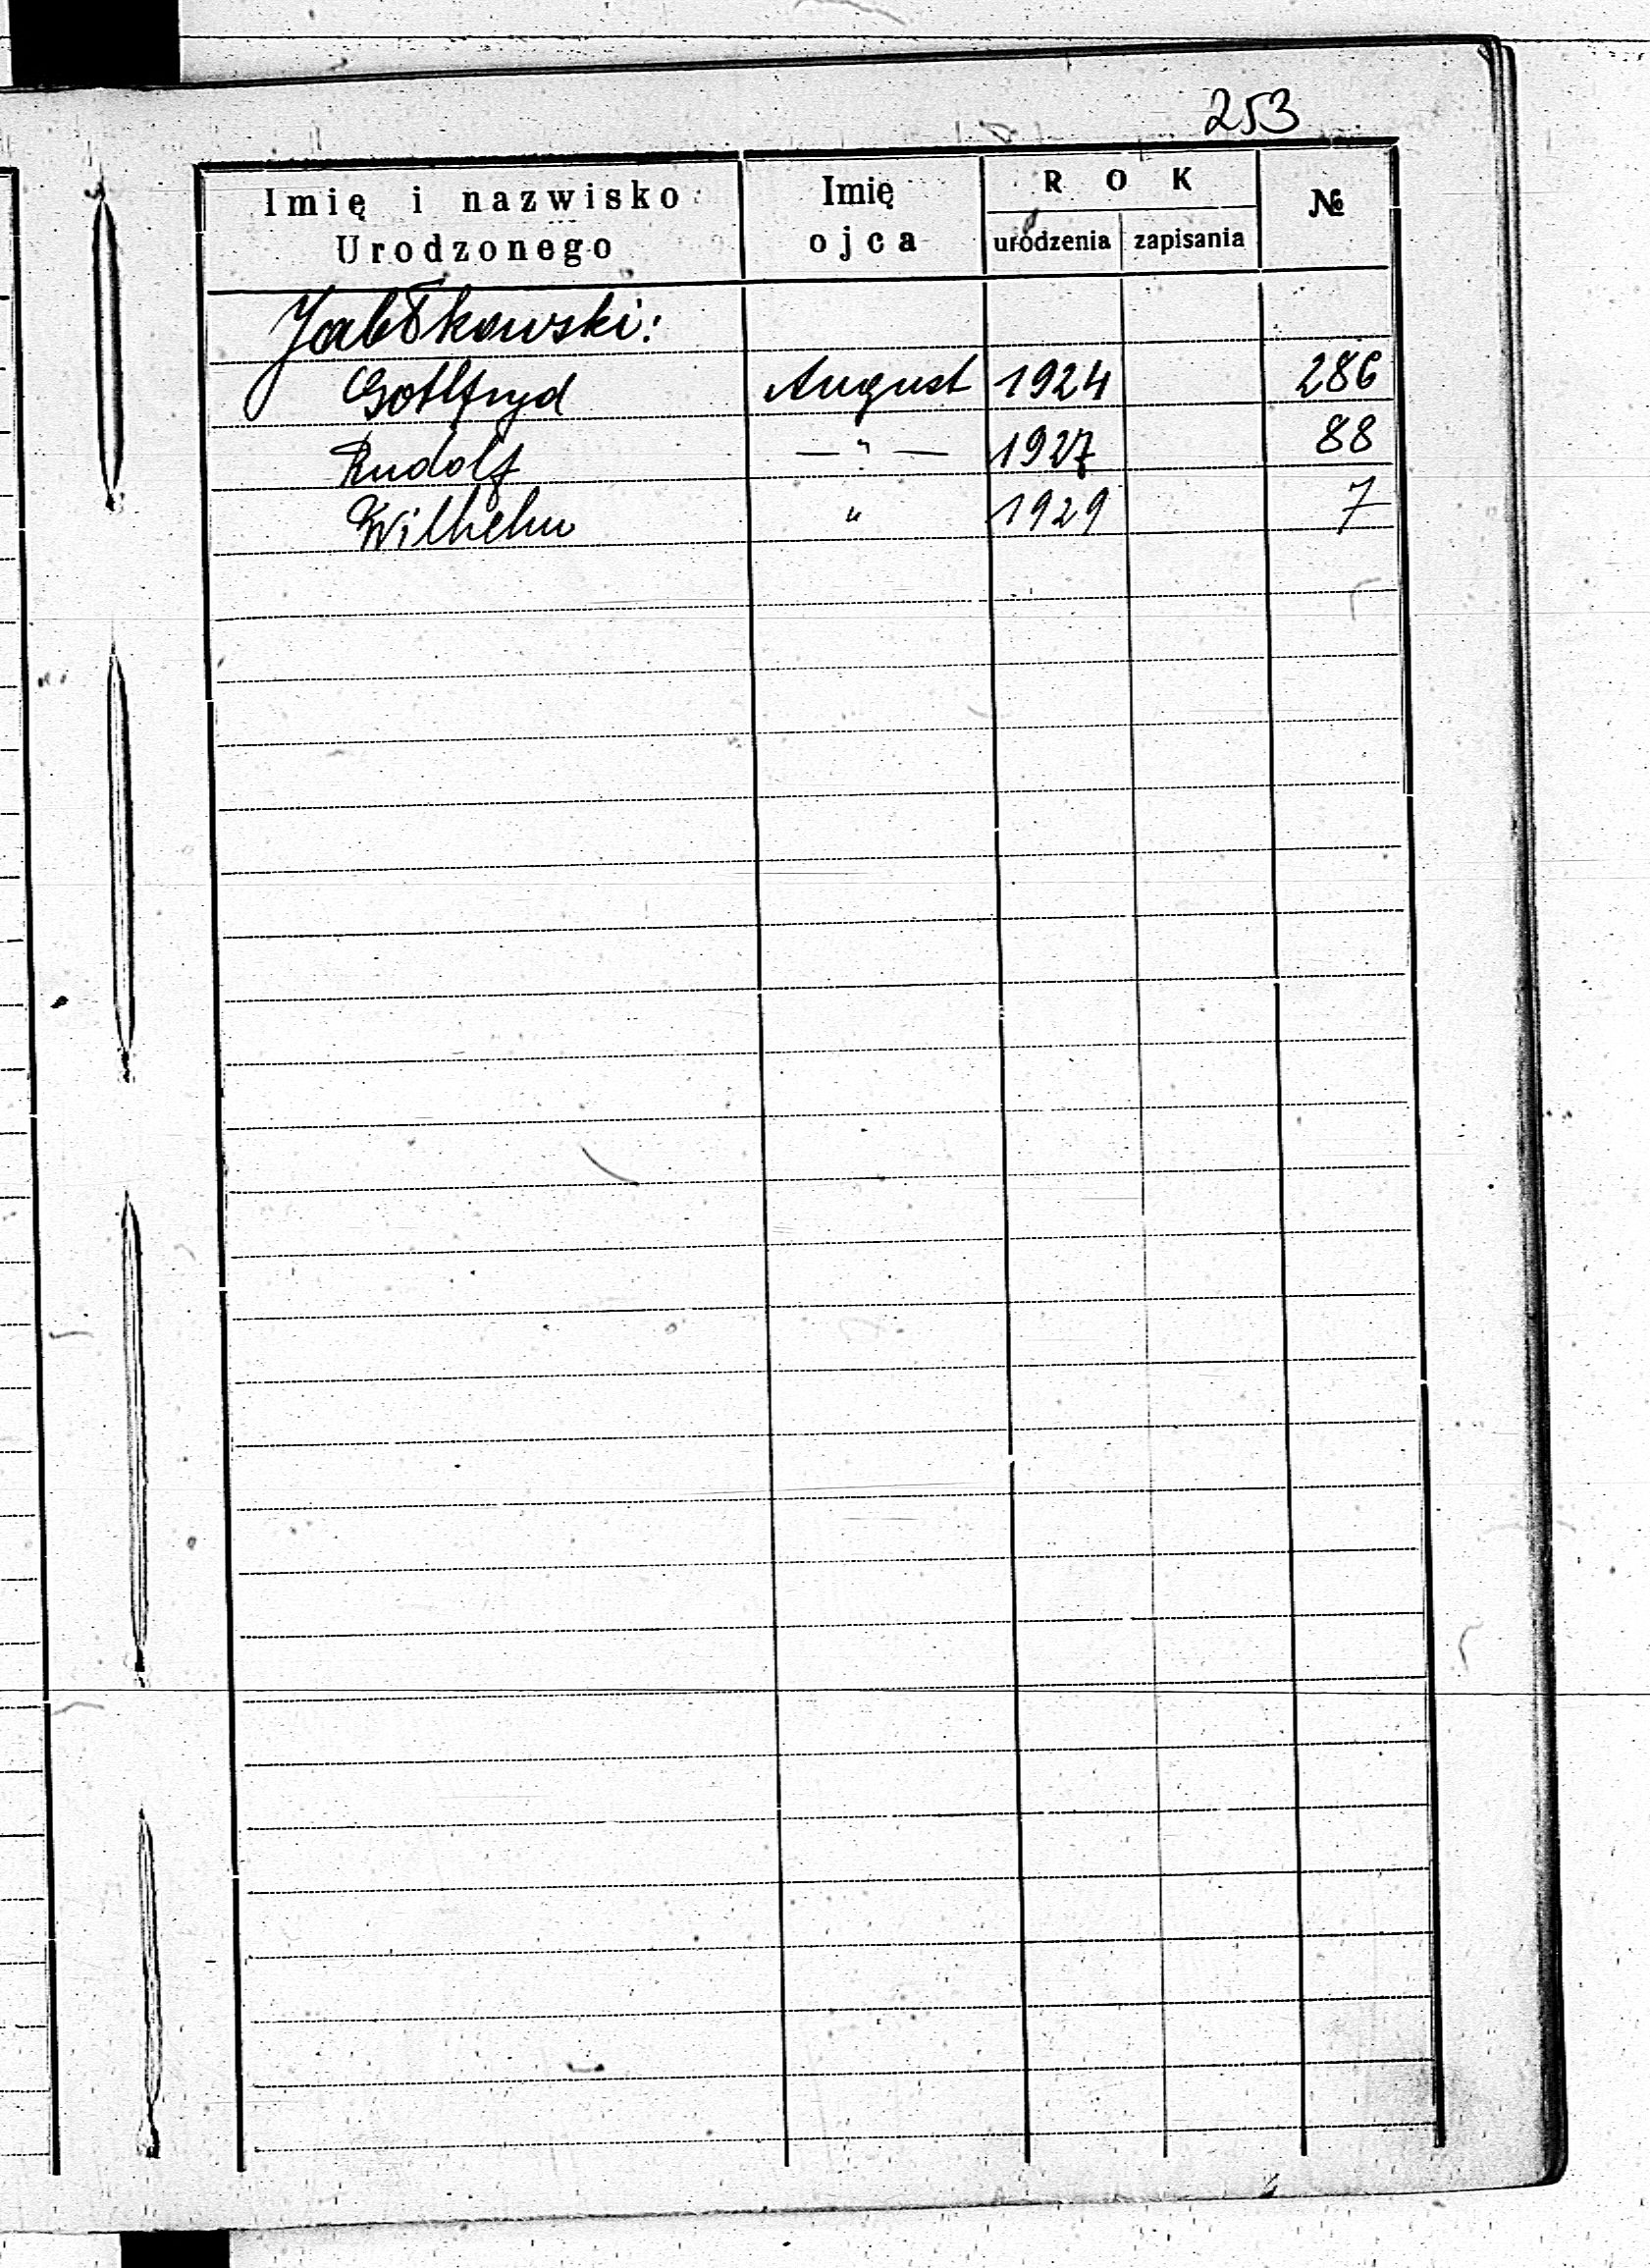 253
Imię i nazwisko Urodzonego | Imię ojca | ROK urodzenia | zapisania | №
Jabłkowski:
Gottfryd August 1924 286
Rudolf — " — 1927 88
Wilhelm " 1929 7